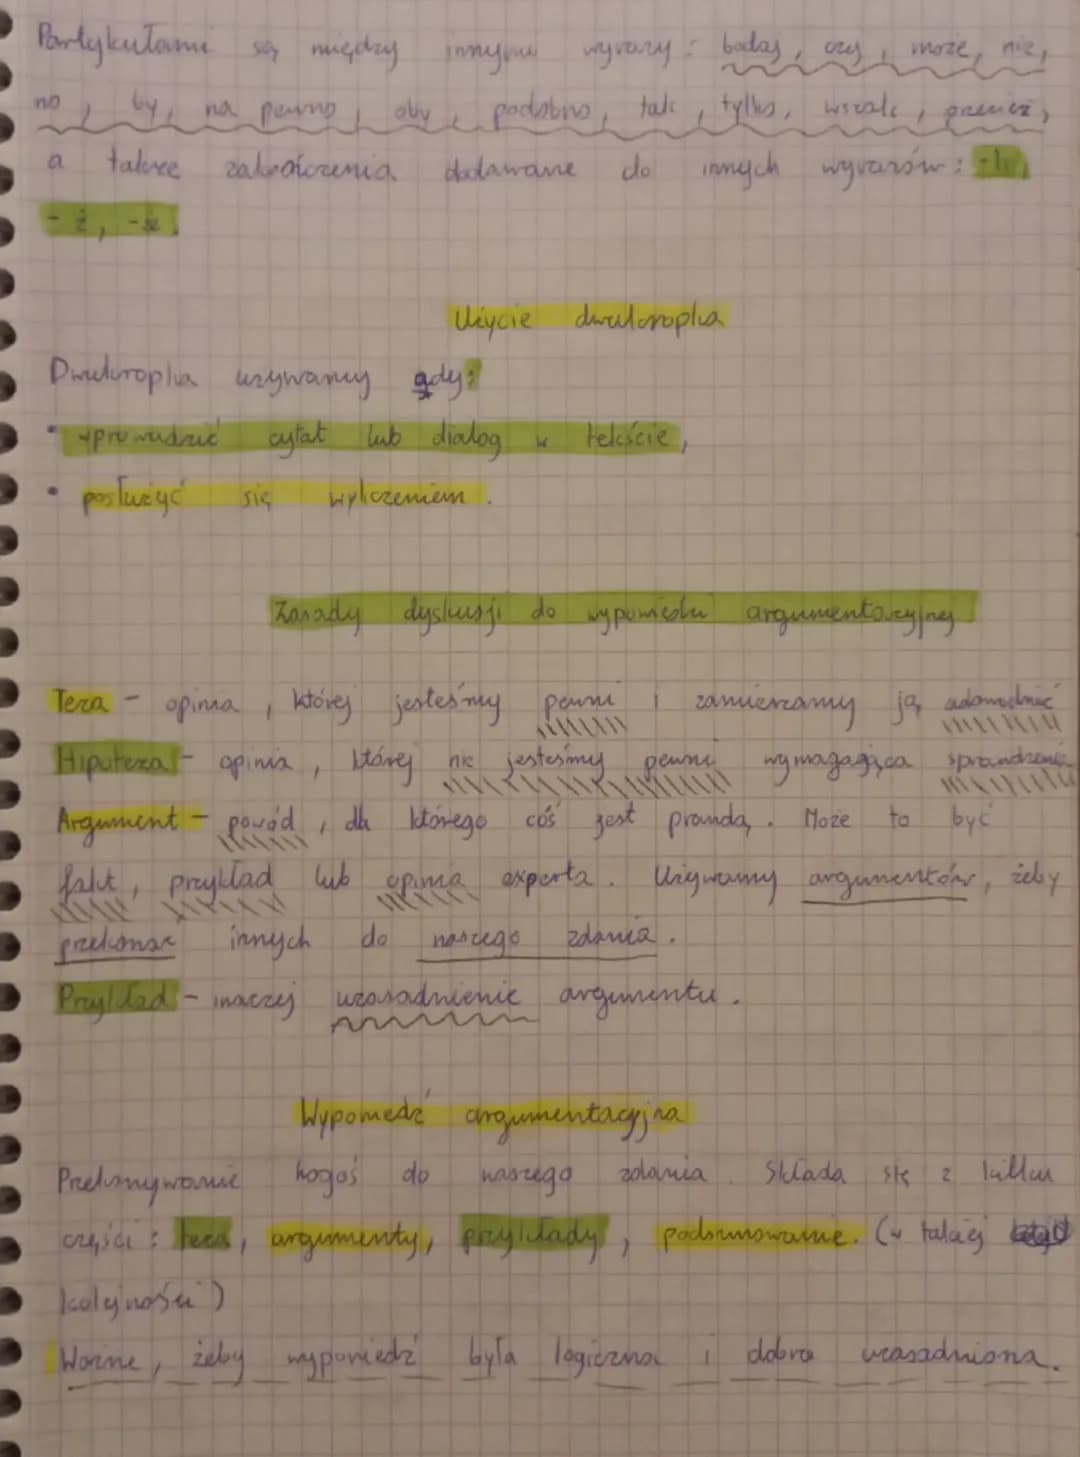 Partykułami są między innymi wyrazy: bodaj, czy, może, nie,
no, by, na pewno, oby, podobno, tak, tylko, wszak, przecież,
a także zakończenia dodawane do innych wyrazów: -li,
-ż, -że.
Użycie dwukropka
Dwukropka używamy gdy:
• wprowadzić cytat lub dialog w tekście,
• posłużyć się wyliczeniem.
Zasady dyskusji do wypowiedzi argumentacyjnej
Teza - opinia, której jesteśmy pewni i zamierzamy ją udowodnić
Hipoteza - opinia, której nie jesteśmy pewni wymagająca sprawdzenia
Argument - powód, dla którego coś jest prawdą. Może to być
fakt, przykład lub opinia experta. Używamy argumentów, żeby
przekonać innych do naszego zdania.
Przykład - inaczej uzasadnienie argumentu.
Wypowiedź argumentacyjna
Przekonywanie kogoś do naszego zdania. Składa się z kilku
części: teza, argumenty, przykłady, podsumowanie. (w takiej
kolejności)
Ważne, żeby wypowiedź była logiczna i dobrze uzasadniona.